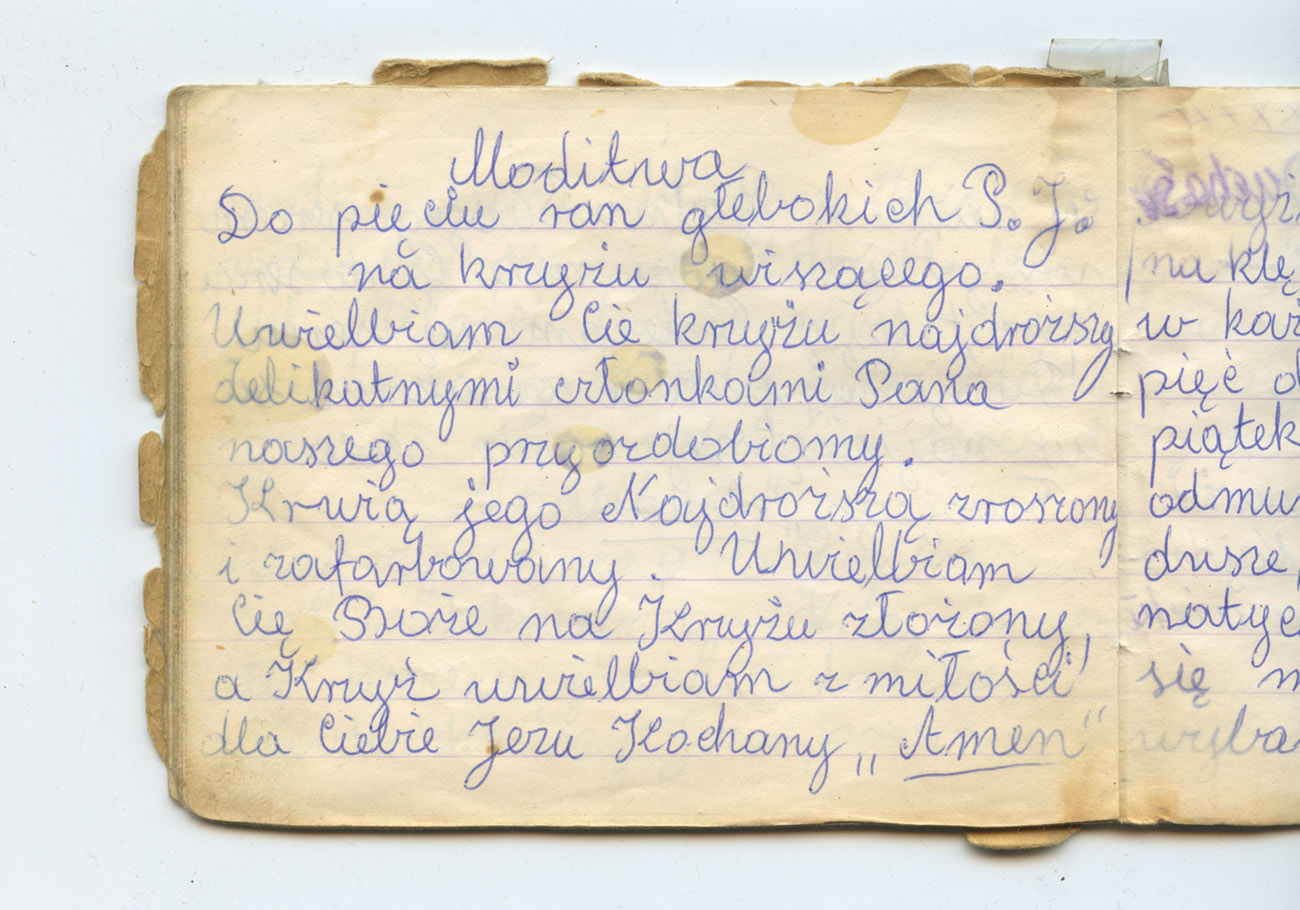 Moditwa
Do pięciu ran głebokich P. J.
na krzyżu wiszącego.
Uwielbiam Cie krzyżu najdroższy
delikatnymi członkami Pana
naszego przyozdobiomy.
Krwią jego Najdroższą zroszony
i zafarbowany. Uwielbiam
Cię Boże na Krzyżu złożony,
a Krzyż uwielbiam z miłości
dla Ciebie Jezu Kochany „Amen"
na klę
w każ
pięć d
piątek
odmu
dusze,
natyc
się m
wyba